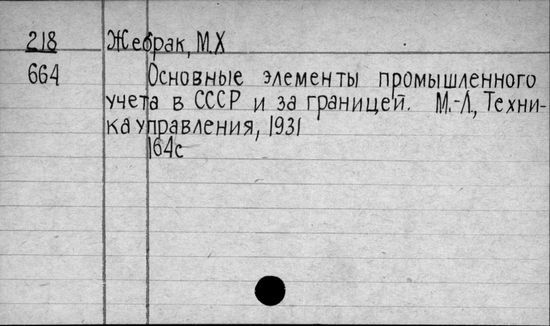 218 Жебрак, М.Х
664 Основные элементы промышленного
учета в СССР и за границей. М.-Л., Техни-
ка управления, 1931
164с